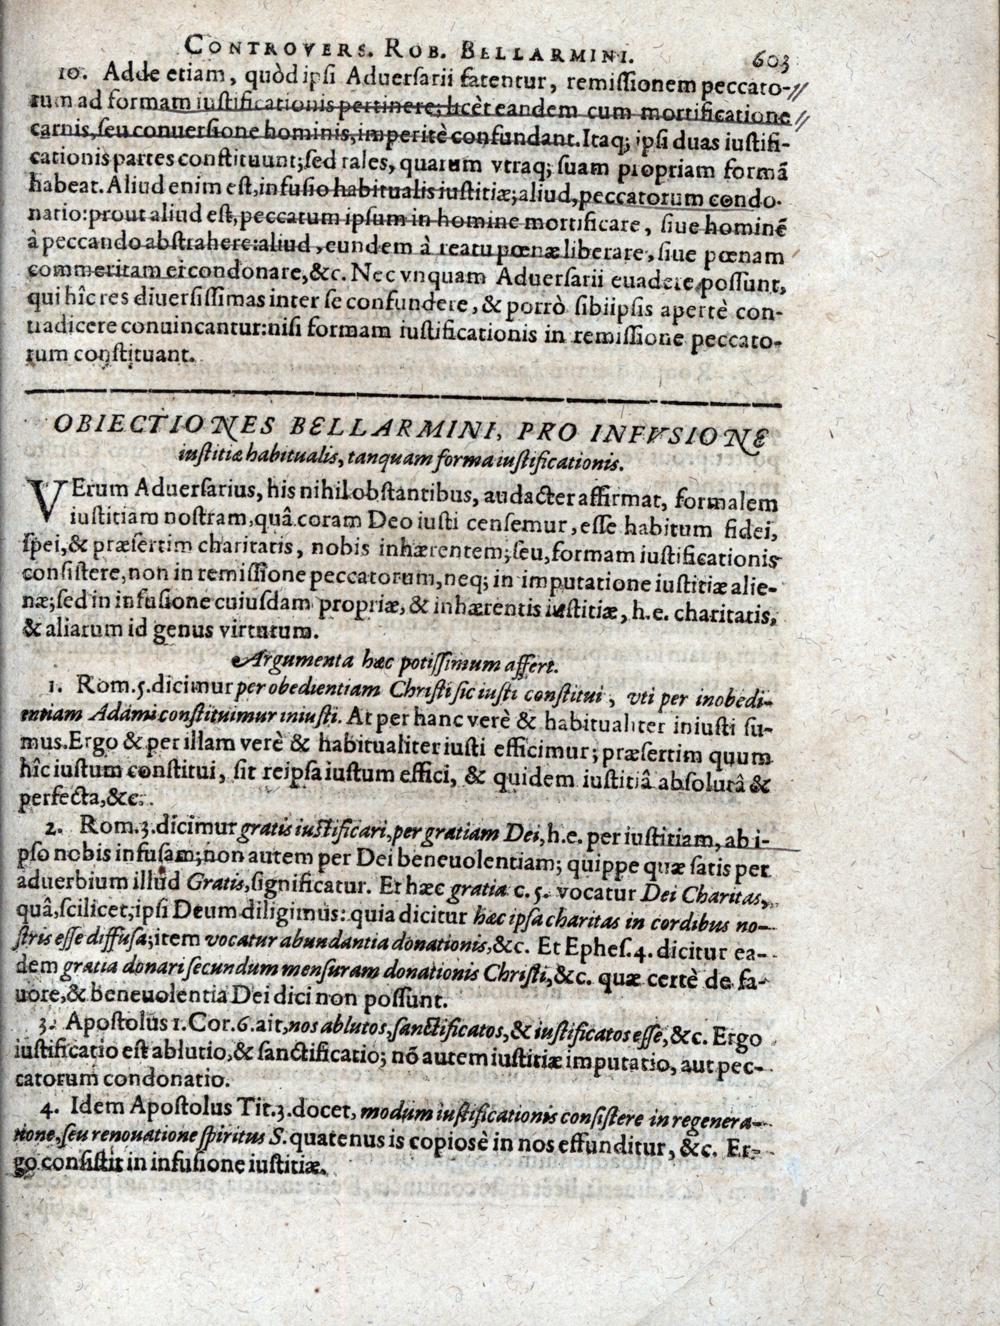 CONTROVERS. ROB. BELLARMINI. 603
10. Adde etiam, quòd ipsi Aduersarii fatentur, remissionem peccato-
rum ad formam iustificationis pertinere; licèt eandem cum mortificatione
carnis, seu conuersione hominis, imperitè confundant. Itaq; ipsi duas iustifi-
cationis partes constituunt; sed tales, quarum vtraq; suam propriam formã
habeat. Aliud enim est, infusio habitualis iustitiæ; aliud, peccatorum condo-
natio: prout aliud est, peccatum ipsum in homine mortificare, siue hominẽ
à peccando abstrahere: aliud, eundem à reatu pœnæ liberare, siue pœnam
commeritam ei condonare, &c. Nec vnquam Aduersarii euadere possunt,
qui hîc res diuersissimas inter se confundere, & porrò sibiipsis apertè con-
tradicere conuincantur: nisi formam iustificationis in remissione peccato-
rum constituant.
OBIECTIONES BELLARMINI, PRO INFVSIONE
iustitiæ habitualis, tanquam forma iustificationis.
VErum Aduersarius, his nihil obstantibus, audacter affirmat, formalem
iustitiam nostram, quâ coram Deo iusti censemur, esse habitum fidei,
spei, & præsertim charitatis, nobis inhærentem; seu, formam iustificationis
consistere, non in remissione peccatorum, neq; in imputatione iustitiæ alie-
næ; sed in infusione cuiusdam propriæ, & inhærentis iustitiæ, h.e. charitatis,
& aliarum id genus virtutum.
Argumenta hæc potissimum affert.
1. Rom. 5. dicimur per obedientiam Christi sic iusti constitui, vti per inobedi-
entiam Adami constituimur iniusti. At per hanc verè & habitualiter iniusti su-
mus. Ergo & per illam verè & habitualiter iusti efficimur; præsertim quum
hîc iustum constitui, sit reipsa iustum effici, & quidem iustitiâ absolutâ &
perfecta, &c.
2. Rom. 3. dicimur gratis iustificari, per gratiam Dei, h.e. per iustitiam, ab i-
pso nobis infusam; non autem per Dei beneuolentiam; quippe quæ satis per
aduerbium illud Gratis, significatur. Et hæc gratia c. 5. vocatur Dei Charitas,
quâ, scilicet, ipsi Deum diligimus: quia dicitur hæc ipsa charitas in cordibus no-
stris esse diffusa; item vocatur abundantia donationis, &c. Et Ephes. 4. dicitur ea-
dem gratia donari secundum mensuram donationis Christi, &c. quæ certè de fa-
uore, & beneuolentia Dei dici non possunt.
3. Apostolus 1. Cor. 6. ait, nos ablutos, sanctificatos, & iustificatos esse, &c. Ergo
iustificatio est ablutio, & sanctificatio; nõ autem iustitiæ imputatio, aut pec-
catorum condonatio.
4. Idem Apostolus Tit. 3. docet, modum iustificationis consistere in regenera-
tione, seu renouatione spiritus S. quatenus is copiosè in nos effunditur, &c. Er-
go consistit in infusione iustitiæ.